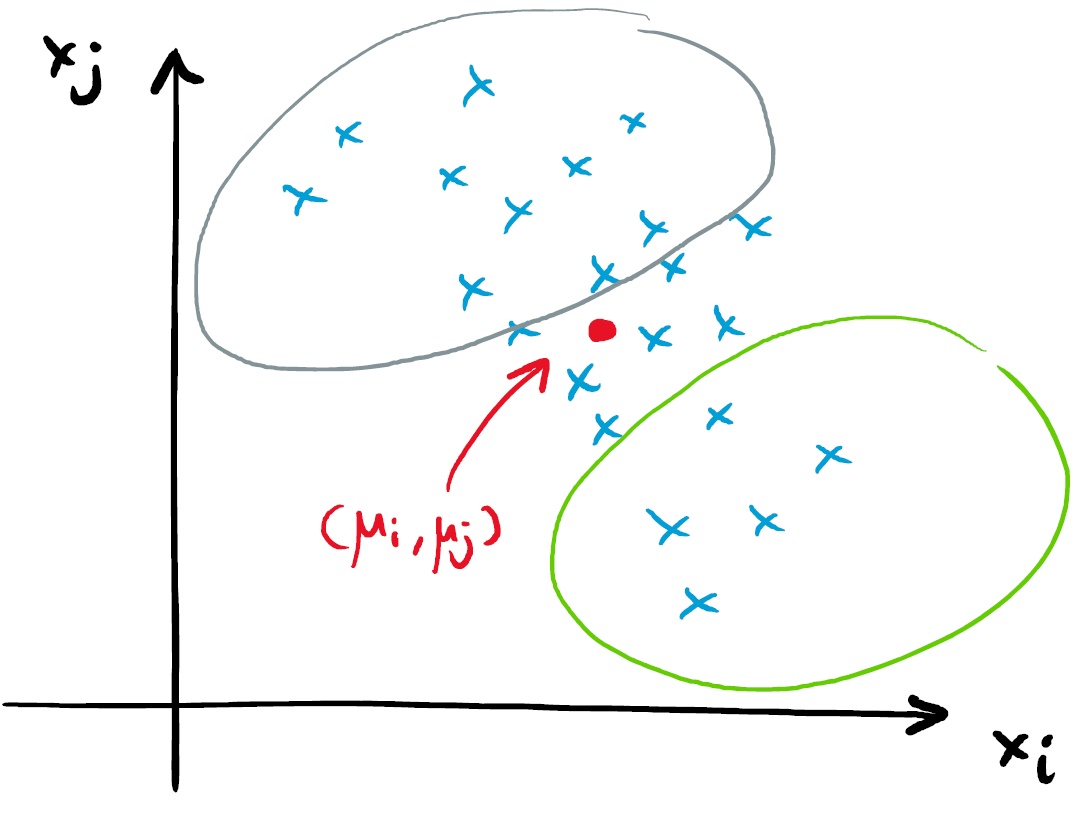 xj
(μi, μj)
xi